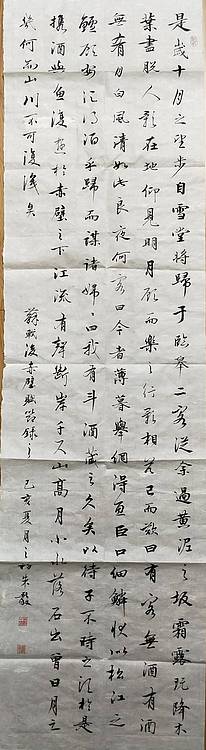 是歲十月之望步自雪堂將歸于臨皋二客從余過黃泥之坂霜露既降木
葉盡脫人影在地仰見明月顧而樂之行歌相答已而歎曰有客無酒有酒
無肴月白風清如此良夜何客曰今者薄暮舉網得魚巨口細鱗狀似松江之
鱸顧安所得酒乎歸而謀諸婦婦曰我有斗酒藏之久矣以待子不時之須於是
攜酒與魚復遊於赤壁之下江流有聲斷岸千尺山高月小水落石出曾日月之
幾何而山川不可復識矣
蘇軾後赤壁賦節錄之
己亥夏月之初朱